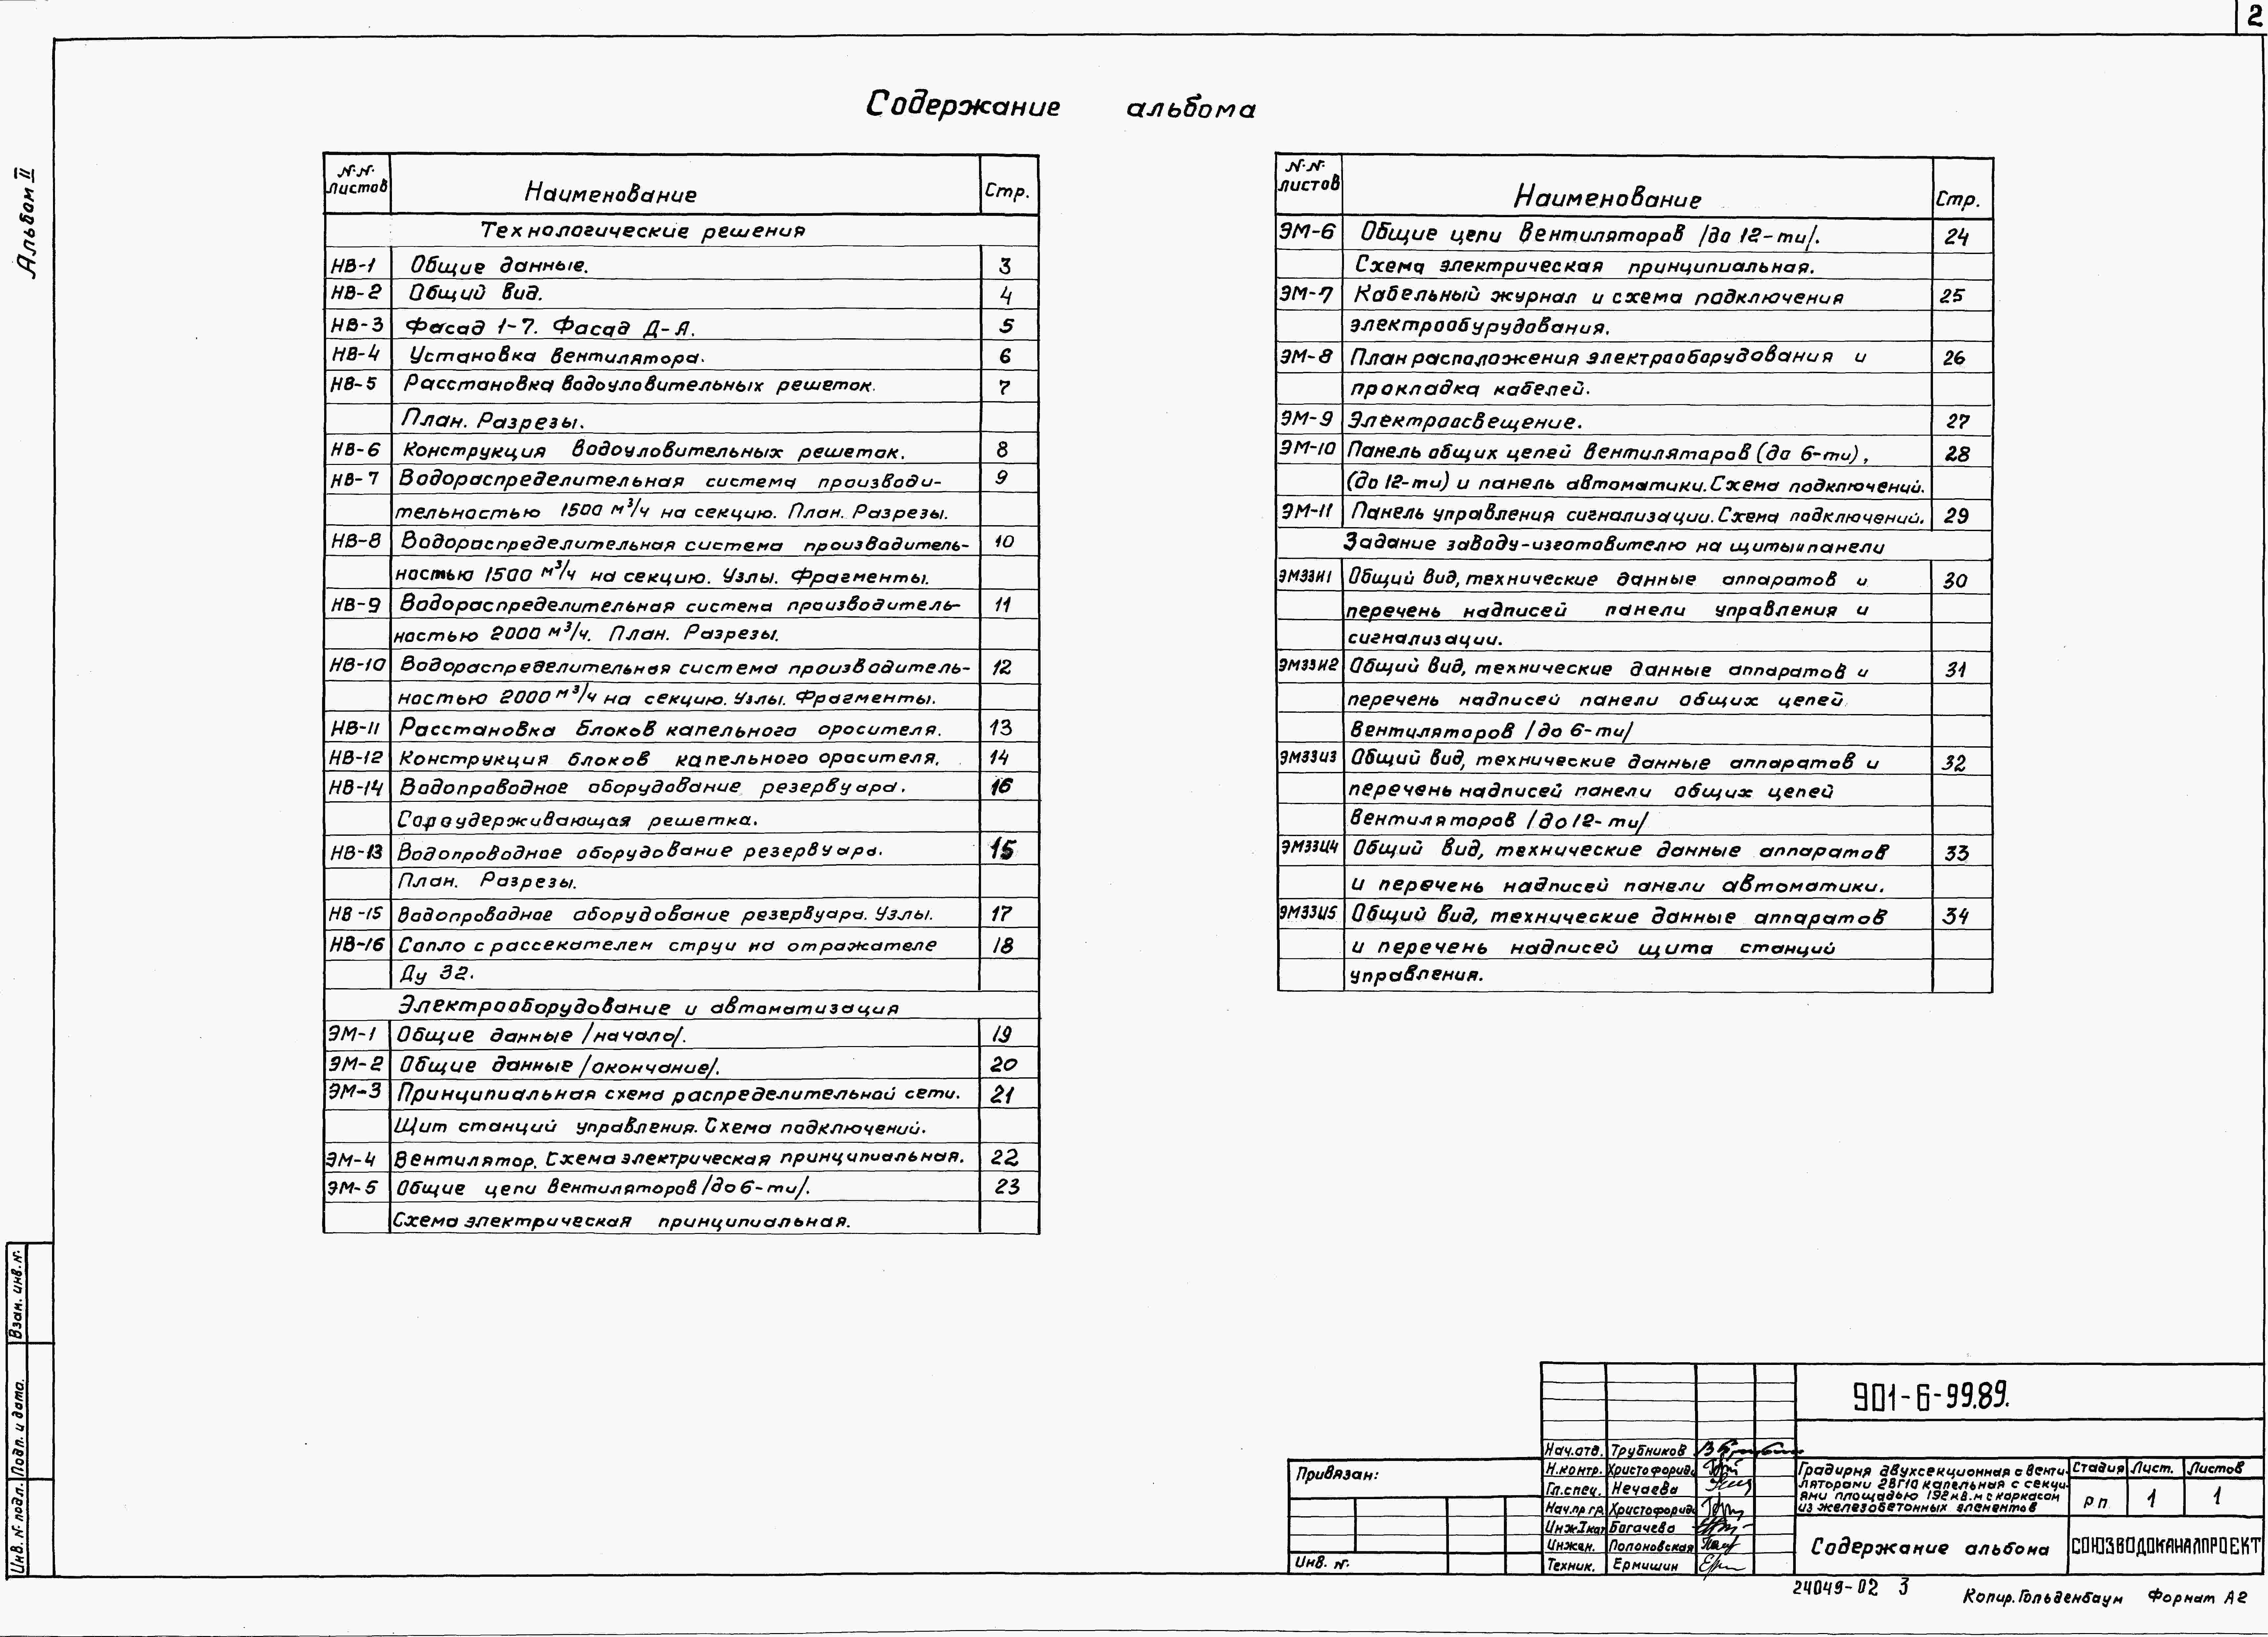 2
Альбом II
Содержание альбома
N.N. листов Наименование Стр.
Технологические решения
НВ-1 Общие данные. 3
НВ-2 Общий вид. 4
НВ-3 Фасад 1-7. Фасад Д-А. 5
НВ-4 Установка вентилятора. 6
НВ-5 Расстановка водоуловительных решеток. 7
План. Разрезы.
НВ-6 Конструкция водоуловительных решеток. 8
НВ-7 Водораспределительная система производи- 9
тельностью 1500 м³/ч на секцию. План. Разрезы.
НВ-8 Водораспределительная система производитель- 10
ностью 1500 м³/ч на секцию. Узлы. Фрагменты.
НВ-9 Водораспределительная система производитель- 11
ностью 2000 м³/ч. План. Разрезы.
НВ-10 Водораспределительная система производитель- 12
ностью 2000 м³/ч на секцию. Узлы. Фрагменты.
НВ-11 Расстановка блоков капельного оросителя. 13
НВ-12 Конструкция блоков капельного оросителя. 14
НВ-14 Водопроводное оборудование резервуара. 16
Сороудерживающая решетка.
НВ-13 Водопроводное оборудование резервуара. 15
План. Разрезы.
НВ-15 Водопроводное оборудование резервуара. Узлы. 17
НВ-16 Сопло с рассекателем струи на отражателе 18
Ду 32.
Электрооборудование и автоматизация
ЭМ-1 Общие данные /начало/. 19
ЭМ-2 Общие данные /окончание/. 20
ЭМ-3 Принципиальная схема распределительной сети. 21
Щит станций управления. Схема подключений.
ЭМ-4 Вентилятор. Схема электрическая принципиальная. 22
ЭМ-5 Общие цепи вентиляторов /до 6-ти/. 23
Схема электрическая принципиальная.
N.N. листов Наименование Стр.
ЭМ-6 Общие цепи вентиляторов /до 12-ти/. 24
Схема электрическая принципиальная.
ЭМ-7 Кабельный журнал и схема подключения 25
электрообурудования.
ЭМ-8 План расположения электрооборудования и 26
прокладка кабелей.
ЭМ-9 Электроосвещение. 27
ЭМ-10 Панель общих цепей вентиляторов (до 6-ти), 28
(до 12-ти) и панель автоматики. Схема подключений.
ЭМ-11 Панель управления сигнализации. Схема подключений. 29
Задание заводу-изготовителю на щиты и панели
ЭМЗЗИ1 Общий вид, технические данные аппаратов и 30
перечень надписей панели управления и
сигнализации.
ЭМЗЗИ2 Общий вид, технические данные аппаратов и 31
перечень надписей панели общих цепей
вентиляторов /до 6-ти/
ЭМЗЗИ3 Общий вид, технические данные аппаратов и 32
перечень надписей панели общих цепей
вентиляторов /до 12-ти/
ЭМЗЗИ4 Общий вид, технические данные аппаратов 33
и перечень надписей панели автоматики.
ЭМЗЗИ5 Общий вид, технические данные аппаратов 34
и перечень надписей щита станций
управления.
Взам. инв. N.
Подп. и дата.
Инв. N. подл.
Привязан:
Инв. N.
901-6-99.89.
Нач.отд. Трубников
Н.контр. Христофориди
Гл.спец. Нечаева
Нач.пр.гр. Христофориди
Инж.I кат Богачева
Инжен. Полоновская
Техник. Ермишин
Градирня двухсекционная с венти-
ляторами 2ВГ10 капельная с секци-
ями площадью 192 кв.м с каркасом
из железобетонных элементов
Стадия Лист. Листов
рп 1 1
Содержание альбома
СОЮЗВОДОКАНАЛПРОЕКТ
24049-02 3
Копир. Гольденбаум Формат А2